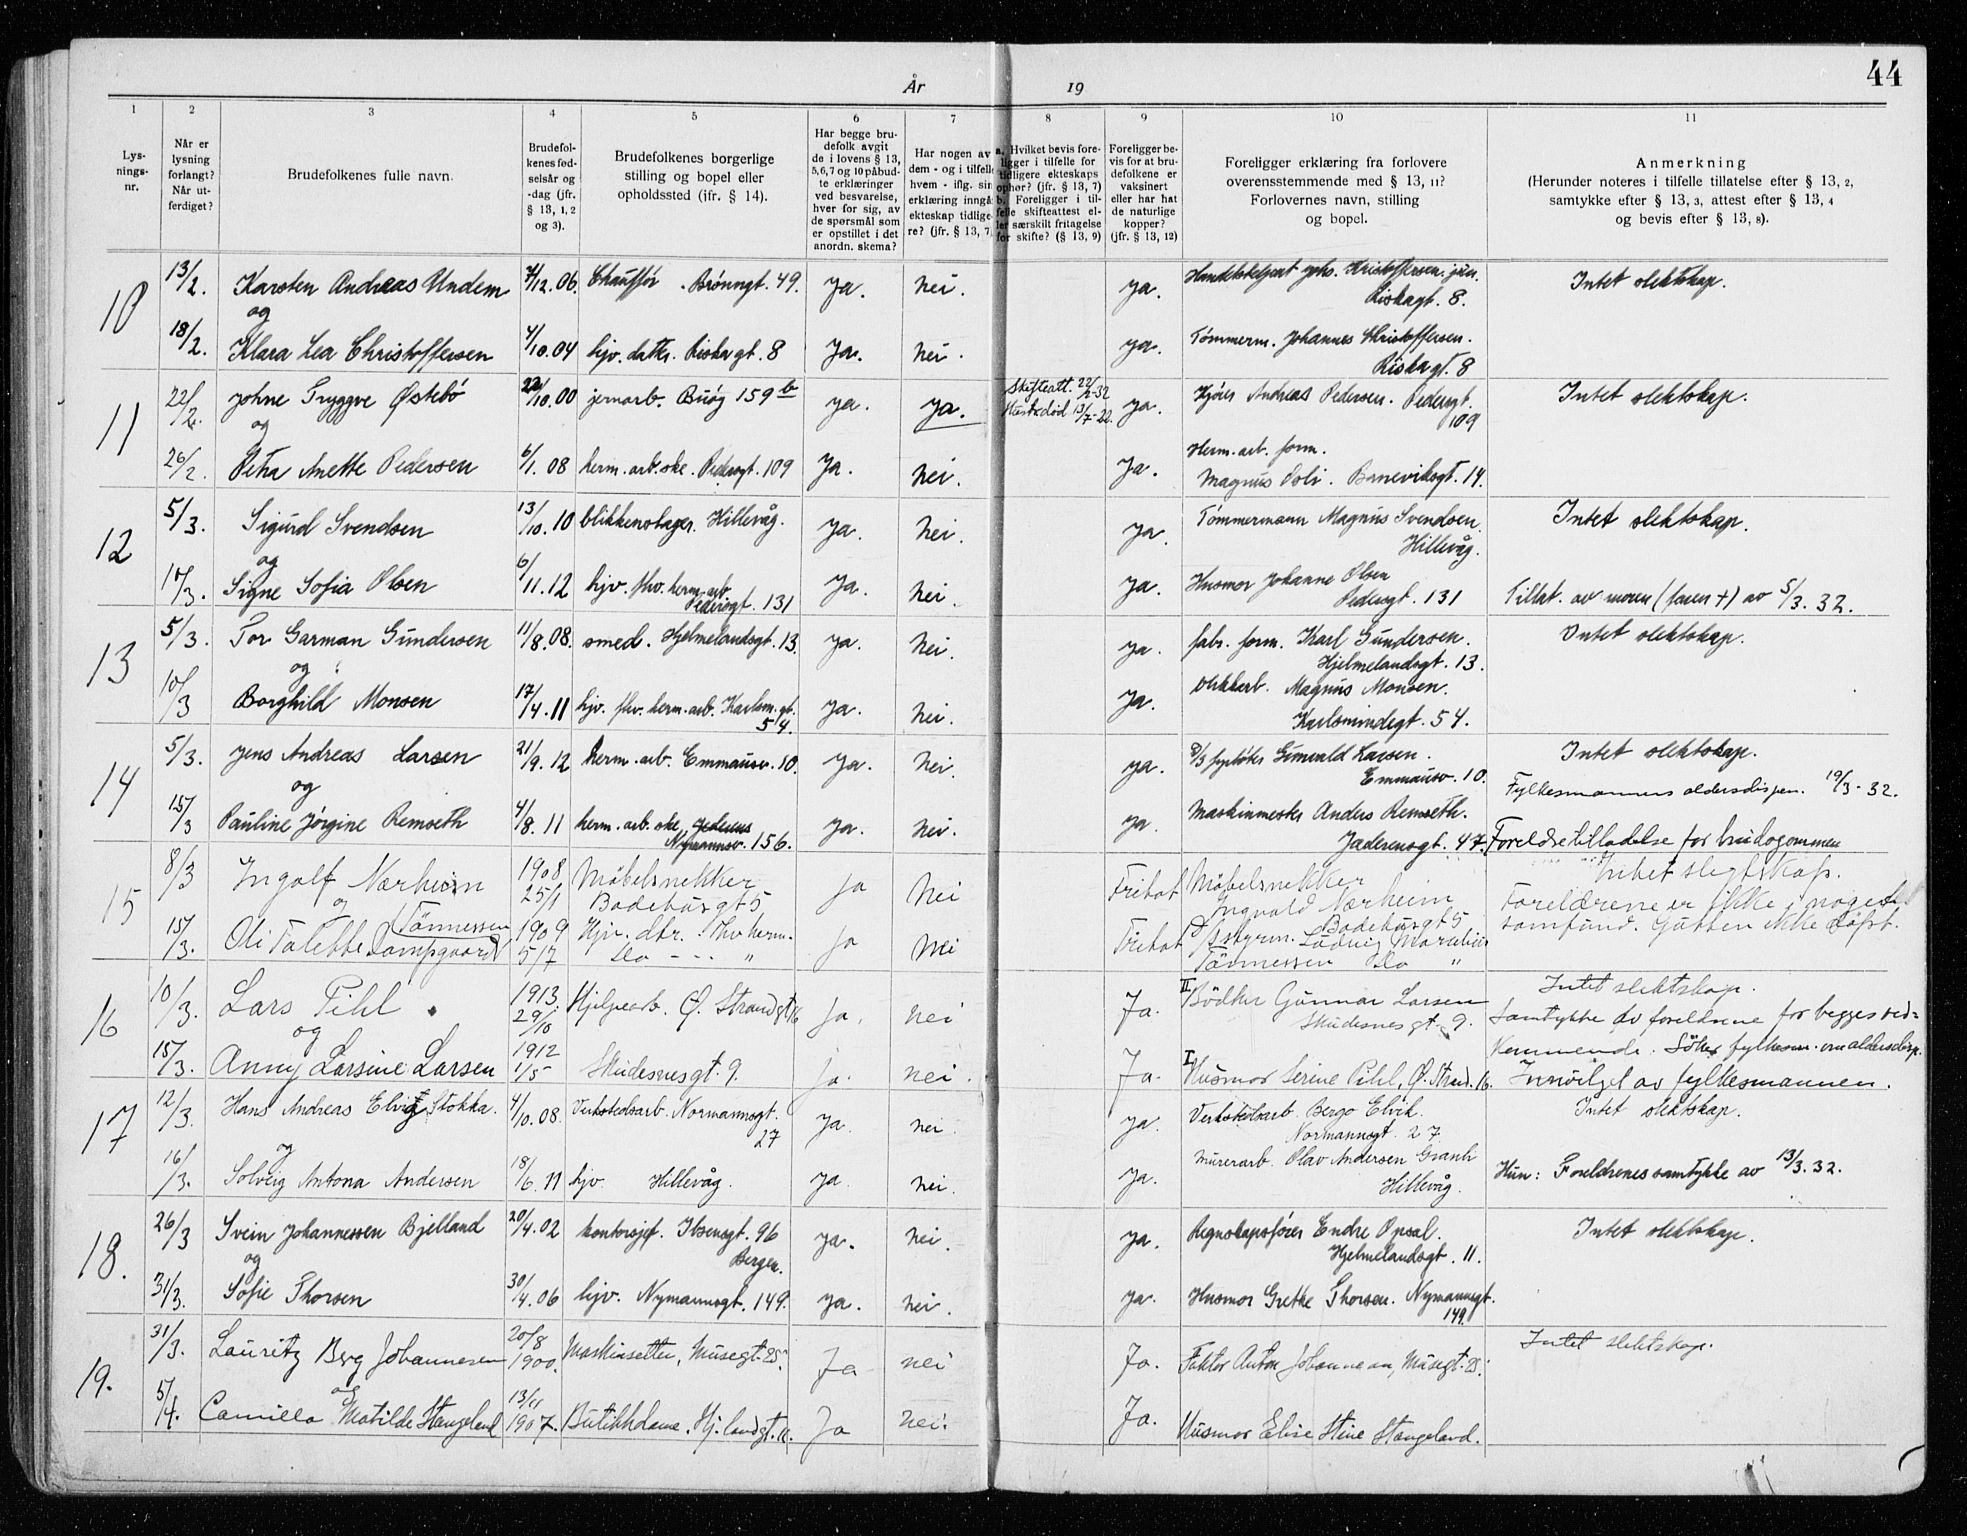 44
År 19
1 2 3 4 5 6 7 8 9 10 11
Lysningsnr.
Når er lysning forlangt? Når utferdiget?
Brudefolkenes fulle navn.
Brudefolkenes fødselsår og -dag (jfr. § 13, 1, 2 og 3).
Brudefolkenes borgerlige stilling og bopel eller opholdssted (ifr. § 14).
Har begge brudefolk avgit de i lovens § 13, 5, 6, 7 og 10 påbudte erklæringer ved besvarelse, hver for sig, av de spørsmål som er opstillet i det anordn. skema?
Har nogen av dem - og i tilfelle hvem - iflg. sin erklæring inngå ekteskap tidligere? (jfr. § 13, 7)
a. Hvilket bevis foreligger i tilfelle for tidligere ekteskaps ophør? (jfr. § 13, 7) b. Foreligger i tilfelle skifteattest eller særskilt fritagelse for skifte? (§ 13, 9)
Foreligger bevis for at brudefolkene er vaksinert eller har hat de naturlige kopper? (jfr. § 13, 12)
Foreligger erklæring fra forlovere overensstemmende med § 13, 11? Forlovernes navn, stilling og bopel.
Anmerkning (Herunder noteres i tilfelle tillatelse efter § 13, 2, samtykke efter § 13, 3, attest efter § 13, 4 og bevis efter § 13, 8).
10 13/2. Karsten Andreas Undem 7/12.06. Chauffør. Brönngt. 49. ja. nei. ja. Johs. Kristoffersen. jun. Riskagt. 8. Intet slektskap.
og
18/2. Klara Lea Christoffersen 4/10.04 hjv. dattr. Riskagt. 8 ja. nei. ja. Tømmerm. Johannes Christoffersen. Riskagt. 8
11 22/2. Johne Tryggve Østebö 22/10.00 jernarb. Buøy 159 b ja. ja. Skifteatt. 22/2-32 Hustr. död 13/7-22. ja. Kjører Andreas Pedersen. Pedersgt. 109 Intet slektskap.
og
26/2. Petra Anette Pedersen 6/1.08 herm. arb. ske. Pedersgt. 109 ja. nei. ja. Herm. arb. form. Magnus Poli. Baneviksgt. 14.
12 5/3. Sigurd Svendsen 13/10.10 blikkenslager. Hillevåg. ja. nei. ja. Tømmermann Magnus Svendsen. Hillevåg. Intet slektskap.
og
10/3. Signe Sofia Olsen 6/11.12 hjv. thv. herm. arb. Pedersgt. 131 ja. nei. ja. Husmor Johanne Olsen Pedersgt. 131 Tillat. av moren (faren +) av 5/3. 32.
13 5/3. Tor Garman Gundersen 11/8.08. smed. Hjelmelandsgt. 13. ja. nei. ja. fabr. form. Karl Gundersen. Hjelmelandsgt. 13. Intet slektskap.
og
10/3 Borghild Monsen 17/4.11 hjv. thv. herm. arb. Karlsm. gt. 54. ja. nei. ja. Magnus Monsen. Karlsmindegt. 54.
14 5/3. Jens Andreas Larsen 21/9.12 herm. arb. Emmausv. 10. ja. nei. ja. D/S fyrböter Gunvald Larsen. Emmausv. 10. Intet slektskap.
og Fylkesmannens aldersdispen. 19/3-32.
15/3 Pauline Jørgine Remseth 4/8.11 herm. arb. ske. Nymannsv. 156. ja. nei. ja. Maskinmester Anders Remseth. Jæderensgt. 47. Foreldretilladelse for brudgommen
15 8/3 Ingolf Nærheim 1908 25/1 Möbelsnekker Badehusgt 5 ja Nei Fritat Möbelsnekker Ingvald Nærheim Badehusgt 5 Intet slegtskap.
og Foreldrene er ikke i noget samfund. Gutten ikke döpt.
15/3. Oli Talette Tönnessen Lampgaard 1909 5/7 Hjv. dtr. thv herm. do - - " ja Nei Fritat D/S styrm. Ludvig Marselius Tönnessen do "
16 10/3. Lars Pihl. 1913. 29/10 Hjelpearb. Ö. Strandgt 16 Ja. nei Ja. II Bödker Gunnar Larsen Skudesnesgt. 9. Intet slektskap.
og Samtykke av foreldrene for begges vedkommende. Söker fylkesm. om aldersdisp.
15/3. Anny Larsine Larsen 1912 1/5 Skudesnesgt. 9. ja. nei. Ja. I Husmor Serine Pihl, Ö. Strand. 16. Innvilget av fylkesmannen.
17 12/3. Hans Andreas Elvik Stokka. 4/10.08. Verkstedsarb. Normannsgt. 27 ja. nei. ja. Verkstedsarb. Berge Elvik. Normannsgt. 27 Intet slektskap.
og
16/3. Solveig Antona Andersen 18/6.11 hjv. Hillevåg. ja. nei. ja. Murerarb. Olav Andersen Hillevåg. Hun: Foreldrenes samtykke av 13/3. 32.
18. 26/3 Svein Johannessen Bjelland 20/4.02 kontorsjef. Ibsensgt. 96 Bergen. ja. nei. ja. Regnskapsfører Endre Opsal. Hjelmelandsgt. 11. Intet slektskap.
og
31/3. Sofie Thorsen 30/4.06 hjv. Nymannsgt. 149. ja. nei. ja. Husmor Grethe Thorsen. Nymannsgt. 149.
19. 31/3. Lauritz Berg Johannesen 20/8 1900. Maskinsetter, Musegt. 25. Ja nei Ja. Faktor Anton Johannesen, Musegt. 25. Intet slektskap.
og
5/4. Camilla Matilde Stangeland 13/11 1907. Butikkdame. Hj. landgt. 11. Ja nei. Ja. Husmor Elise Stine Stangeland.